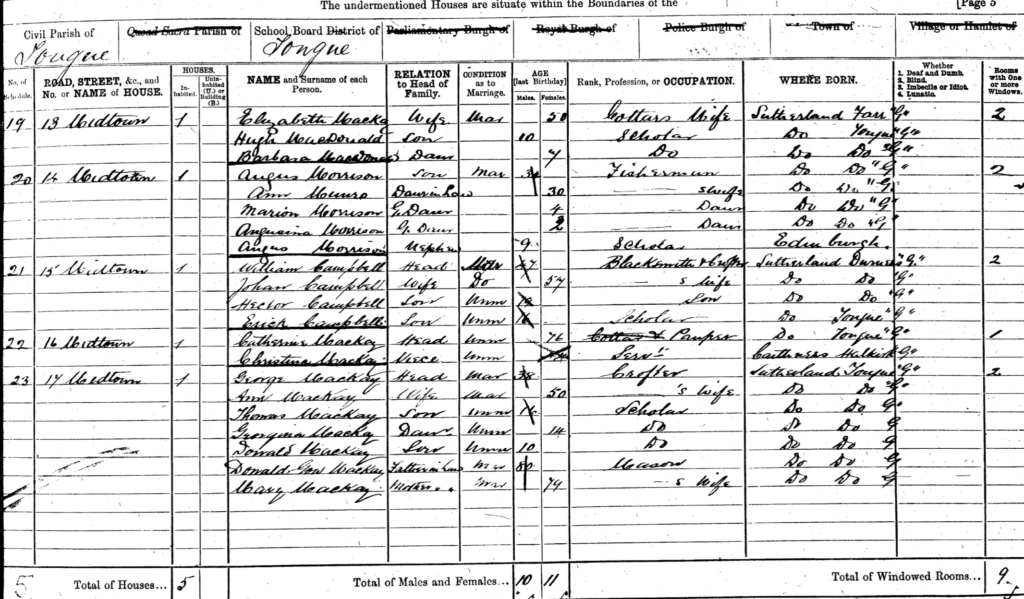 The undermentioned Houses are situate within the Boundaries of the [Page 5
Civil Parish of Tongue Quoad Sacra Parish of School Board District of Tongue Parliamentary Burgh of Royal Burgh of Police Burgh of Town of Village or Hamlet of
No. of Schedule. ROAD, STREET, &c., and No. or NAME of HOUSE. HOUSES. Inhabited. Uninhabited (U.) or Building (B.) NAME and Surname of each Person. RELATION to Head of Family. CONDITION as to Marriage. AGE [last Birthday] Males. Females. Rank, Profession, or OCCUPATION. WHERE BORN. Whether 1. Deaf and Dumb. 2. Blind. 3. Imbecile or Idiot. 4. Lunatic. Rooms with One or more Windows.
19 13 Midtown 1 Elizabeth Mackay Wife Mar 50 Cottars Wife Sutherland Farr "G" 2
Hugh MacDonald Son 10 Scholar Do Tongue "G"
Barbara MacDonald Daur 7 Do Do Do "G"
20 14 Midtown 1 Angus Morrison Son Mar Fisherman Do Do "G" 2
Ann Munro Daurinlaw 30 s Wife Do Do "G"
Marion Morrison G. Daur 4 Daur Do Do "G"
Angusina Morrison G. Daur 2 Daur Do Do "G"
Angus Morrison Nephew 9 Scholar Edinburgh.
21 15 Midtown 1 William Campbell Head Mar Blacksmith & Crofter Sutherland Durness "G" 2
Johan Campbell Wife Do 57 s Wife Do Do "G"
Hector Campbell Son Unm Son Do Do "G"
Erick Campbell Son Unm Scholar Do Tongue "G"
22 16 Midtown 1 Catherine Mackay Head Unm 76 Cottar & Pauper Do Tongue "G" 1
Christina Mackay Niece Unm Servt Caithness Halkirk "G"
23 17 Midtown 1 George Mackay Head Mar 38 Crofter Sutherland Tongue "G" 2
Ann Mackay Wife Mar 50 's Wife Do Do "G"
Thomas Mackay Son Unm 16 Scholar Do Do G
Georgina Mackay Daur Unm 14 Do Do Do G
Donald Mackay Son Unm 10 Do Do Do G
Donald Gow Mackay Fatherinlaw Mar 80 Mason Do Do G
Mary Mackay Mother " " Mar 79 s Wife Do Do G
5 Total of Houses... 5 Total of Males and Females... 10 11 Total of Windowed Rooms... 9